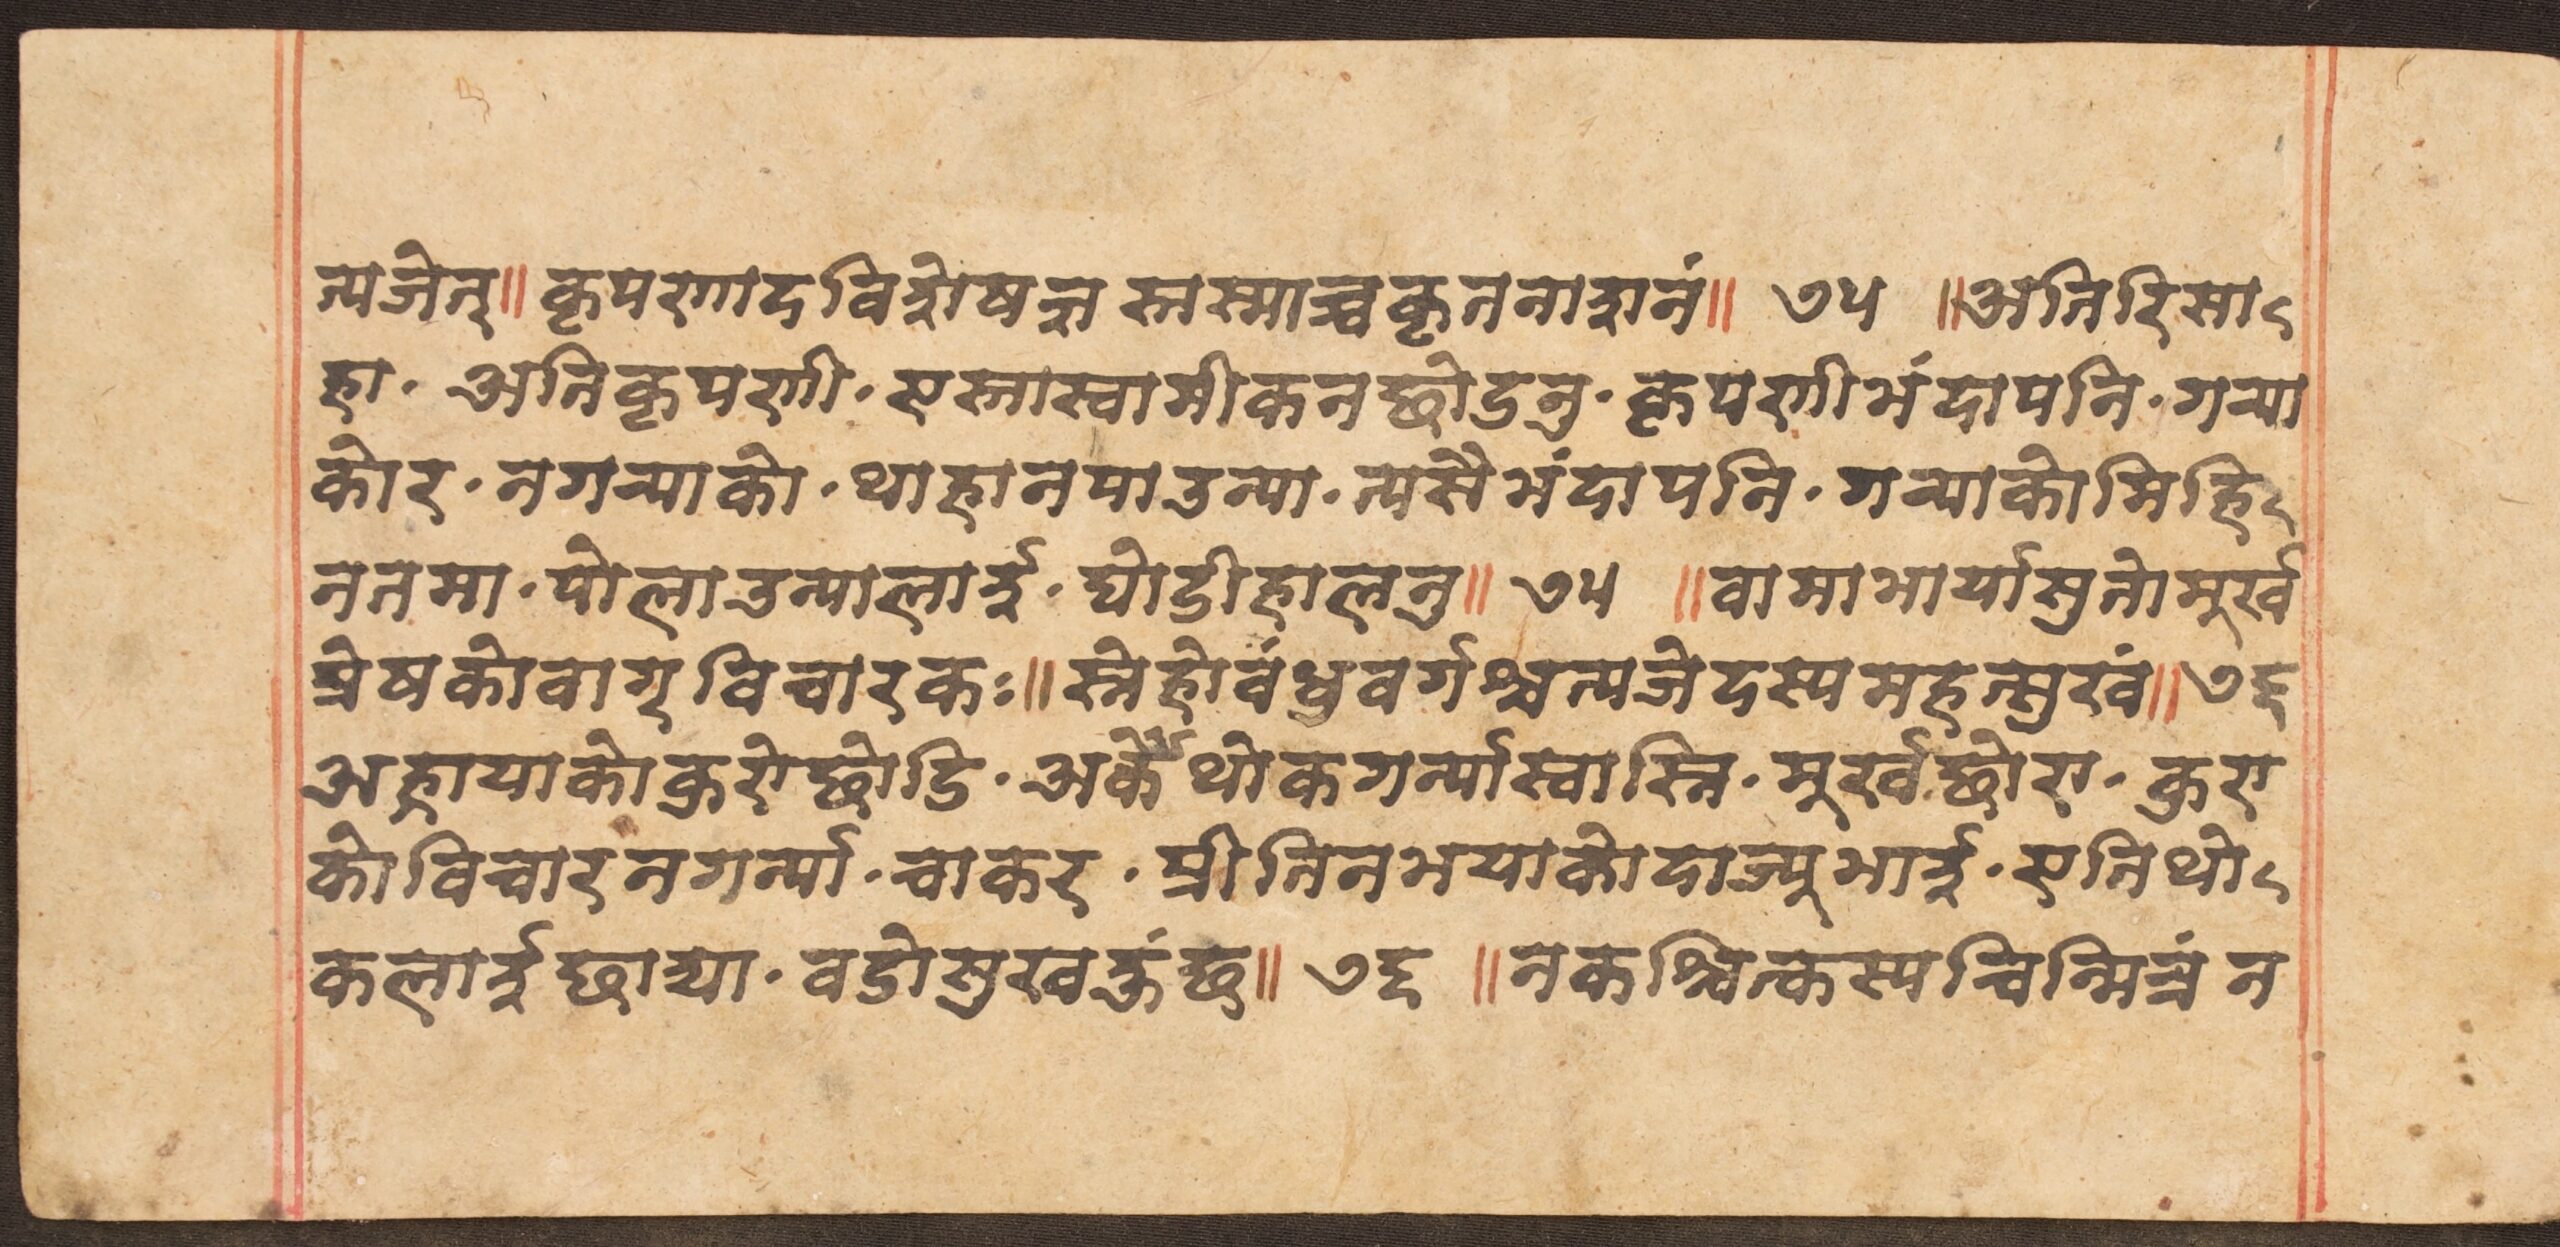 त्यजेत्॥ कृपणादविशेषज्ञ स्तस्माच्चकृतनाशनं॥ ७५ ॥अतिरिसा
हा· अतिकृपणी· एस्तास्वामीकनछोडनु· कृपणीभंदापनि· गर्‍या
कोर· नगर्‍याको· थाहानपाउन्या· त्यसैभंदापनि· गर्‍याकोमिहि
नतमा· पोलाउन्यालाई· घोडीहालनु॥ ७५ ॥वामाभार्यासुतोमूर्ख
प्रेषकोवाग्विचारकः॥ स्नेहोवंधुवर्गश्चत्यजेदस्यमहत्सुखं॥ ७६
अह्रायाकोकुरोछोडि· अर्कैथोकगर्न्यास्वास्नि· मूर्खछोरा· कुरा
कोविचारनगर्न्या· चाकर· प्रीतिनभयाकोदाज्यूभाई· एतिथो
कलाईछाड्या· वडोसुखहुंछ॥ ७६ ॥नकश्चित्कस्यचिन्मित्रं न